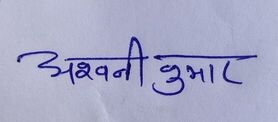 अश्वनी कुमार